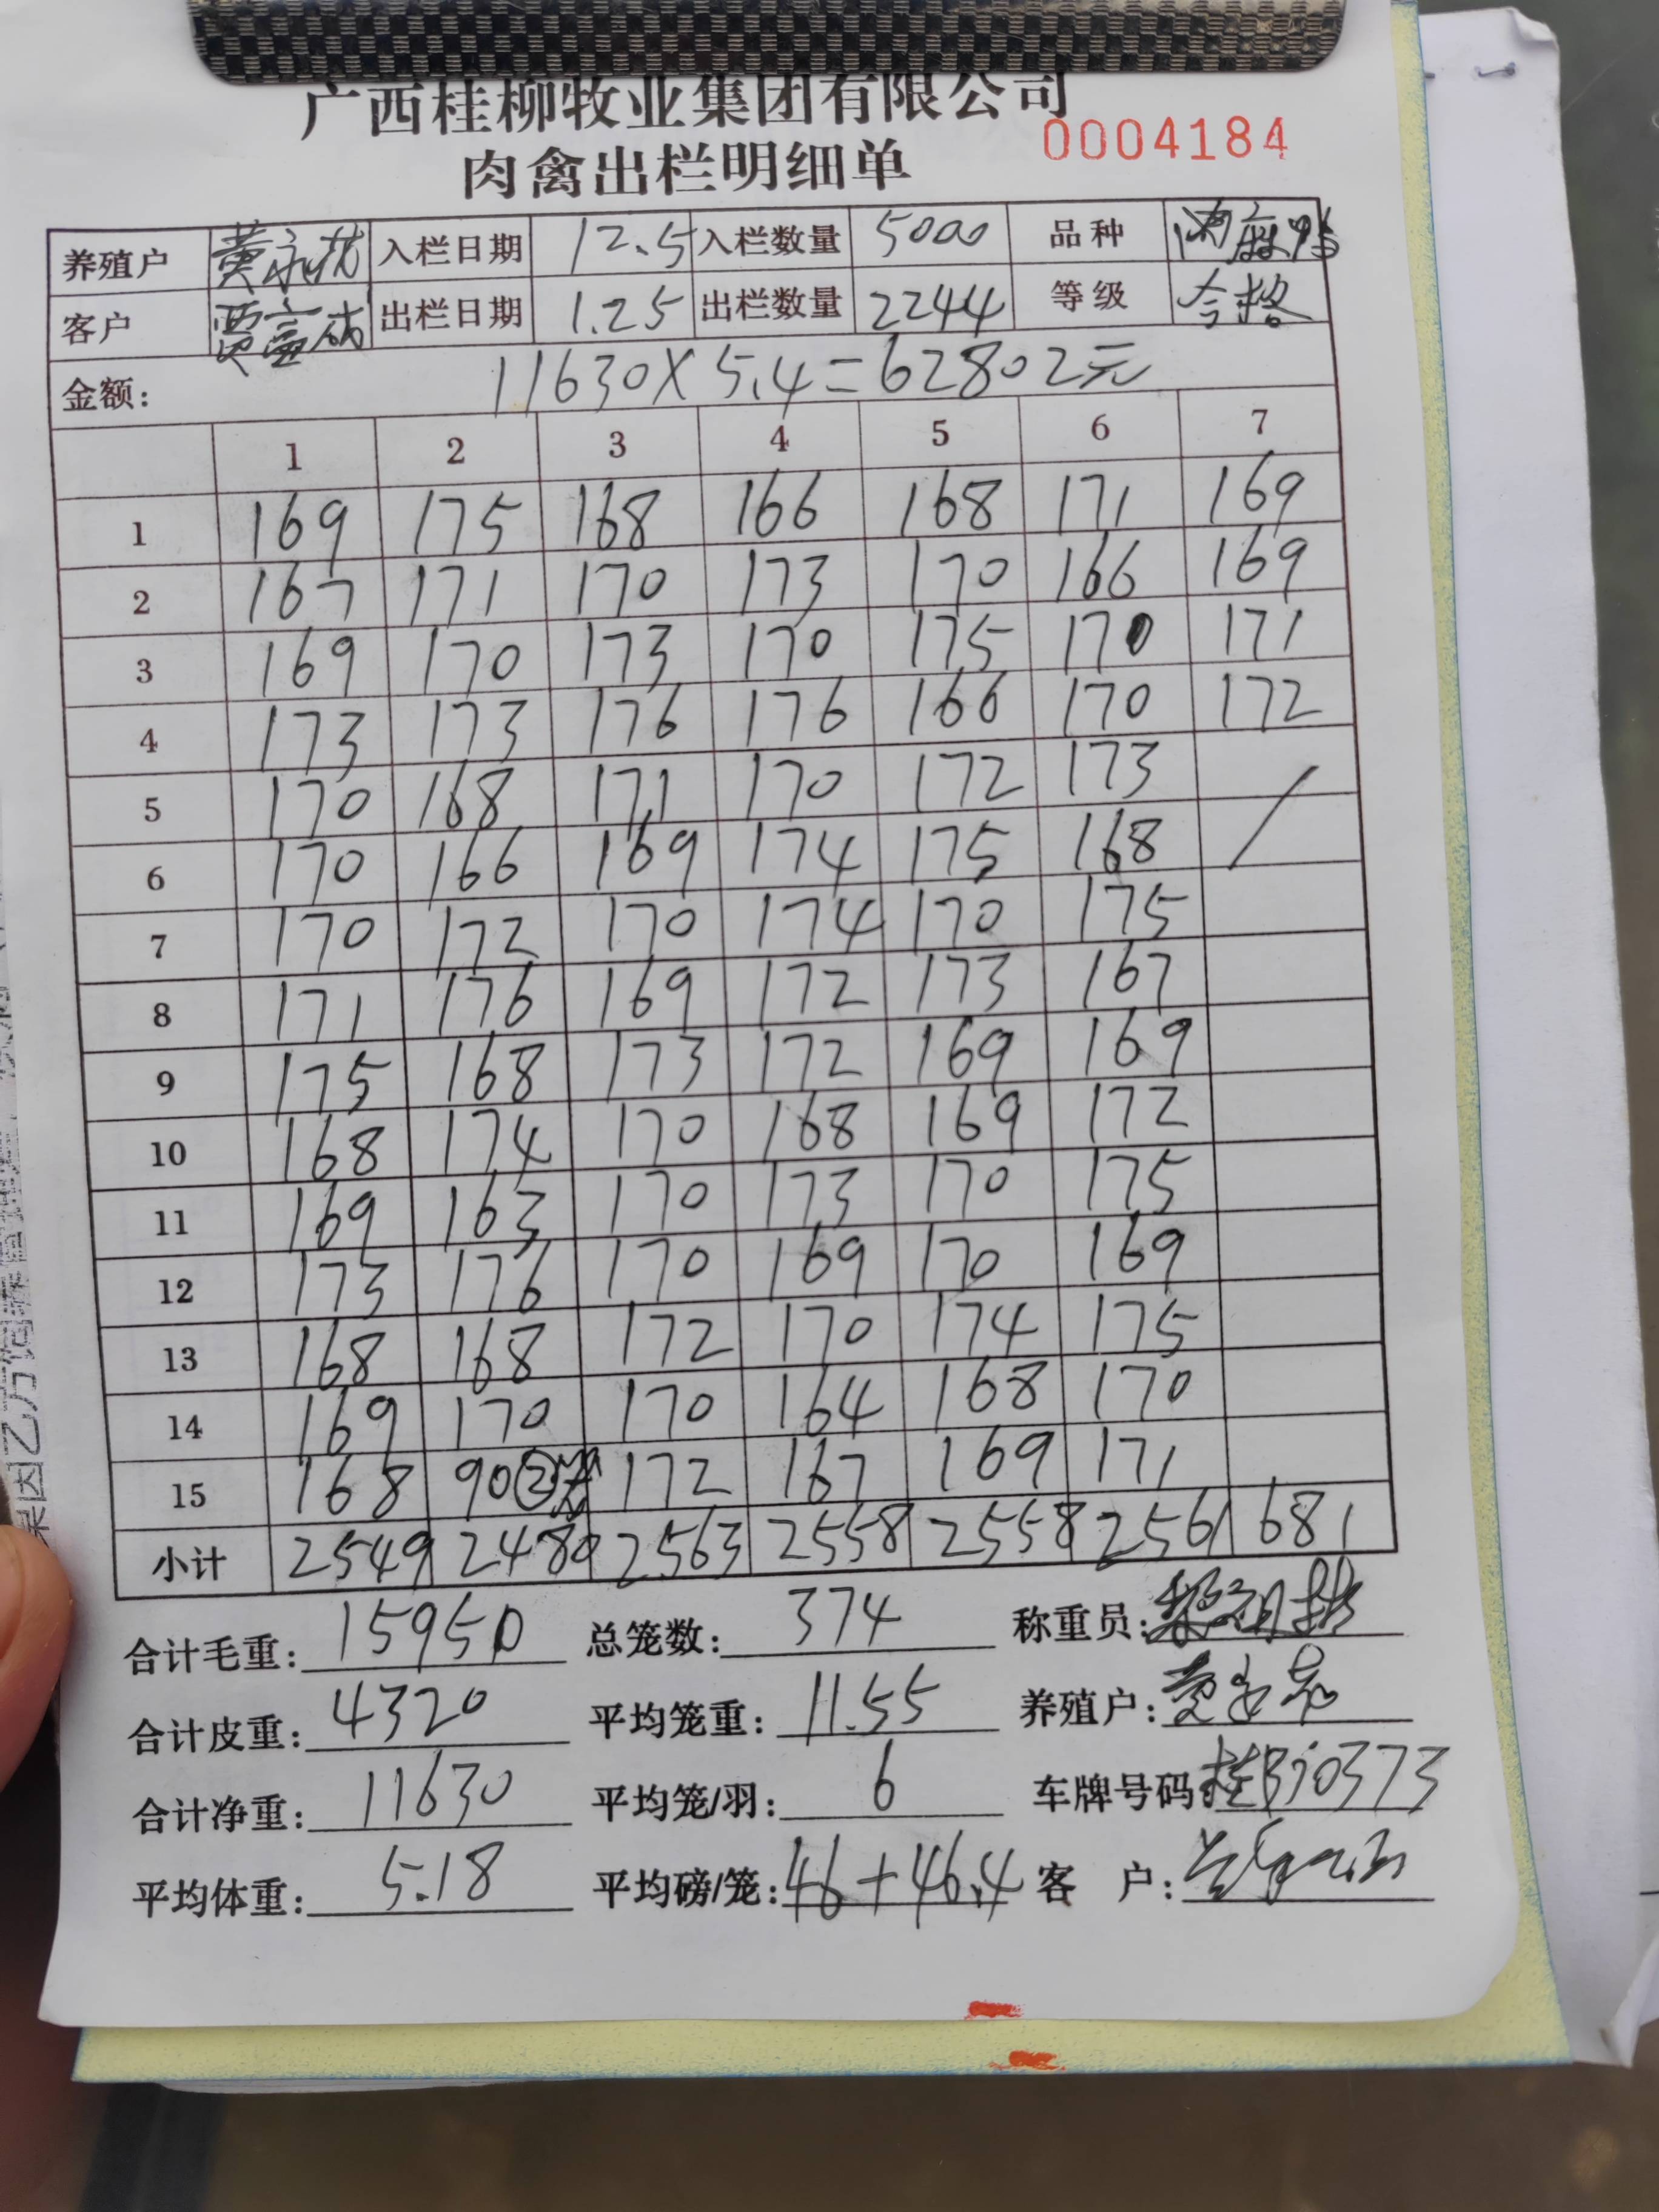 广西桂柳牧业集团有限公司
0004184
肉禽出栏明细单
养殖户 入栏日期 12.5 入栏数量 5000 品种
客户 出栏日期 1.25 出栏数量 2244 等级 合格
金额: 11630×5.4=62802元
1 2 3 4 5 6 7
1 169 175 168 166 168 171 169
2 167 171 170 173 170 166 169
3 169 170 173 170 175 170 171
4 173 173 176 176 166 170 172
5 170 168 171 170 172 173
6 170 166 169 174 175 168
7 170 172 170 174 170 175
8 171 176 169 172 173 167
9 175 168 173 172 169 169
10 168 174 170 168 169 172
11 169 163 170 173 170 175
12 173 176 170 169 170 169
13 168 168 172 170 174 175
14 169 170 170 164 168 170
15 168 90② 172 167 169 171
小计 2549 2480 2563 2558 2558 2561 681
合计毛重: 15950 总笼数: 374 称重员:
合计皮重: 4320 平均笼重: 11.55 养殖户:
合计净重: 11630 平均笼/羽: 6 车牌号码
平均体重: 5.18 平均磅/笼: 46+46.4 客 户: